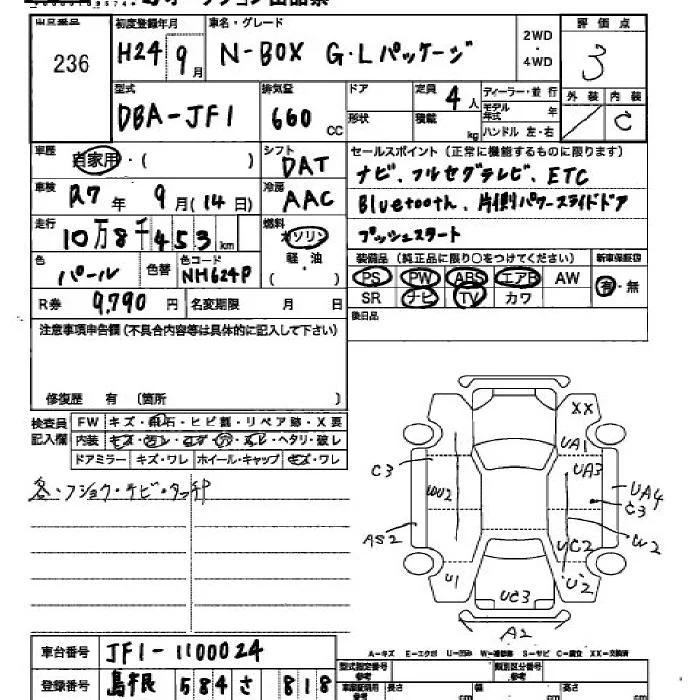 出品番号 236
初度登録年月 H24 9月
車名・グレード N-BOX G・Lパッケージ 2WD・4WD
評価点 3
外装 内装 C
型式 DBA-JF1
排気量 660 CC
ドア 形状
定員 4人
積載 kg
ディーラー・並行
モデル年式 年
ハンドル 左・右
車歴 自家用・( )
シフト DAT
車検 R7年 9月(14日)
冷房 AAC
走行 10万8千453km
燃料 ガソリン 軽油 ( )
色 パール 色替 色コード NH624P
R券 9,790円 名変期限 月 日
セールスポイント(正常に機能するものに限ります)
ナビ、フルセグテレビ、ETC
Bluetooth、片側パワースライドドア
プッシュスタート
装備品(純正品に限り○をつけてください) 新車保証書
PS PW ABS エアB AW 有・無
SR ナビ TV カワ
後日品
注意事項申告欄(不具合内容等は具体的に記入して下さい)
修復歴 有 〔箇所 〕
検査員記入欄
FW キズ・飛石・ヒビ割・リペア跡・X要
内装 キズ・汚レ・コゲ・穴・スレ・ヘタリ・破レ
ドアミラー キズ・ワレ ホイール・キャップ キズ・ワレ
各・フショク・チビ・タッチP
XX
UA1
C3
UA3
WU2
UA4
C3
AS2
W2
UC2
U1
U2
UC3
A2
A-キズ E-エクボ U-凹み W-補修跡 S-サビ C-腐食 XX-交換済
車台番号 JF1-1100024
登録番号 島根 584 さ 818
型式指定番号 参考
類別区分番号 参考
車庫証明用 参考 長さ cm 幅 cm 高さ cm